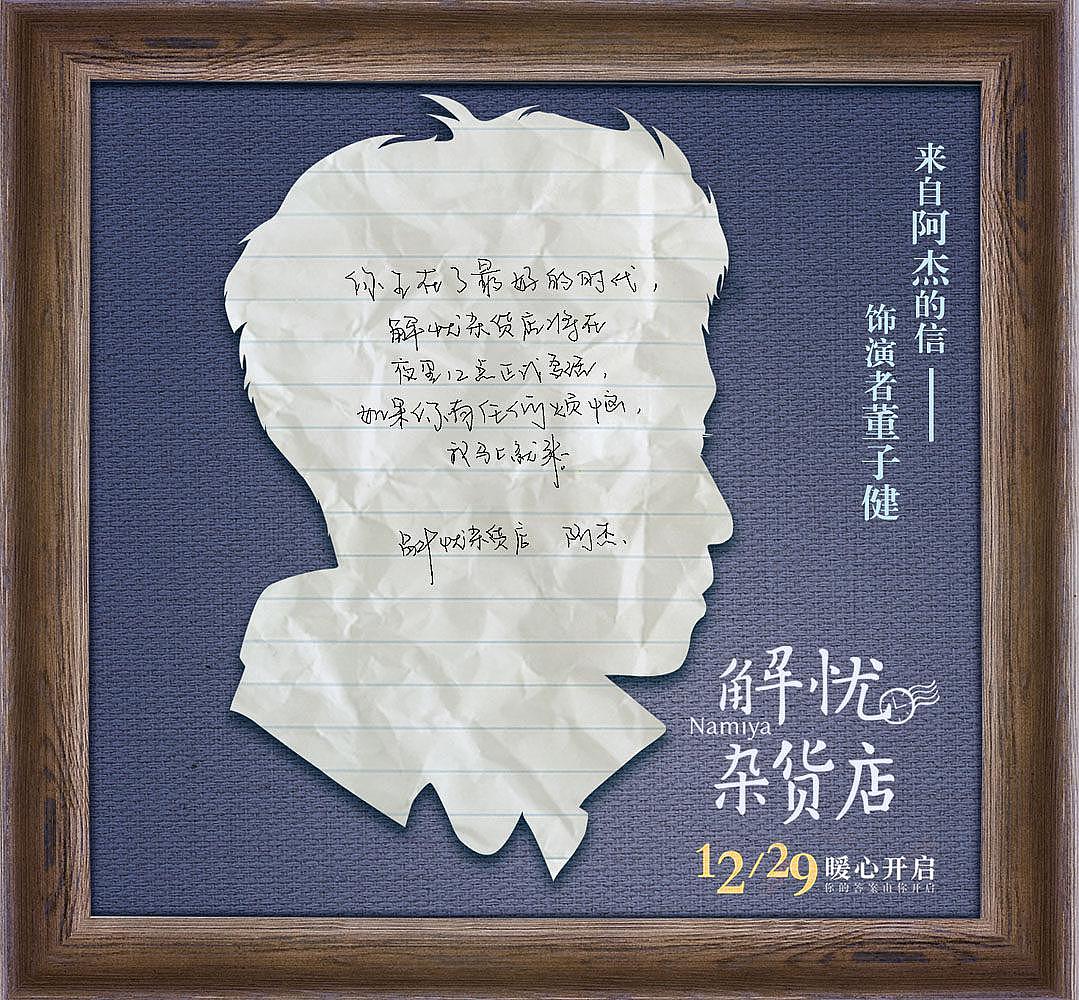 来自阿杰的信——
饰演者董子健
你生在了最好的时代，
解忧杂货店将在
夜里12点正式营运，
如果你有任何烦恼，
我马上就来。
解忧杂货店 阿杰.
解忧
Namiya
杂货店
12/29 暖心开启
你的答案由你开启